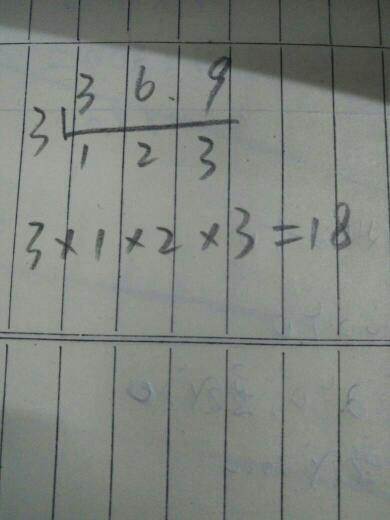 3 6. 9
3
1 2 3
3×1×2×3=18